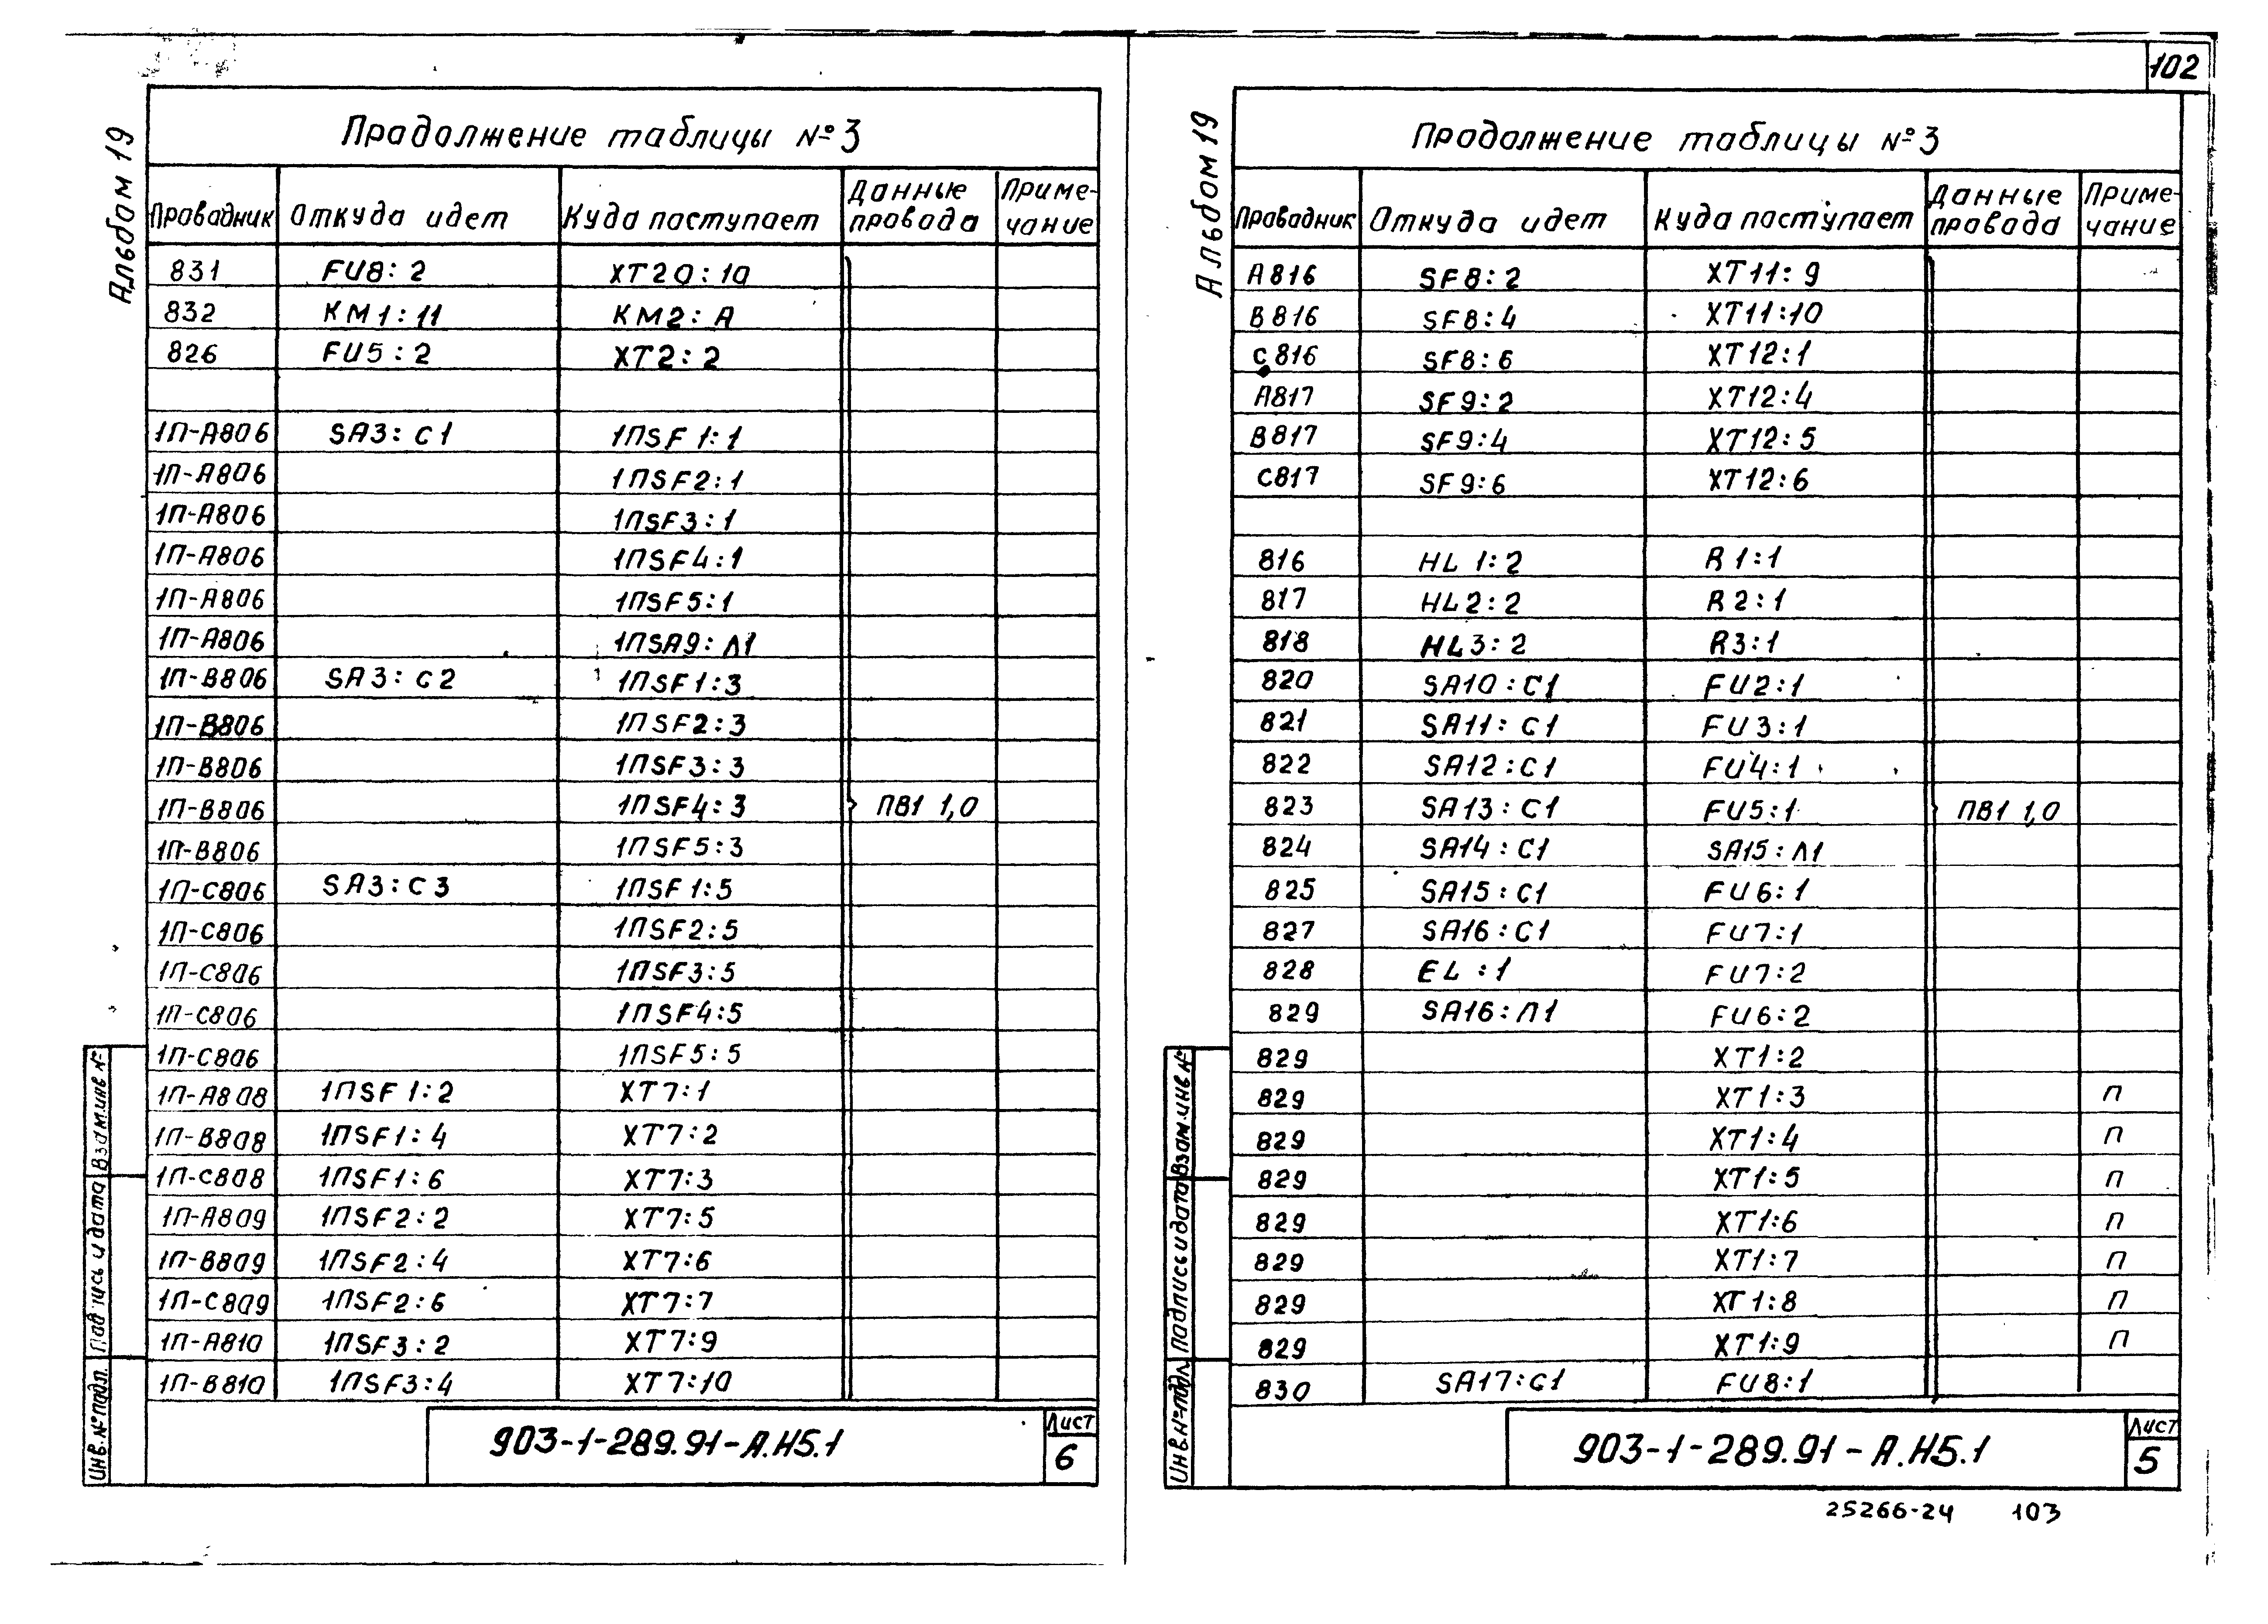 102
Альбом 19
Продолжение таблицы № 3
Проводник Откуда идет Куда поступает Данные провода Приме-чание
831 FU8:2 XT20:10
832 KM1:11 KM2:A
826 FU5:2 XT2:2
1П-A806 SA3:C1 1ПSF1:1
1П-A806 1ПSF2:1
1П-A806 1ПSF3:1
1П-A806 1ПSF4:1
1П-A806 1ПSF5:1
1П-A806 1ПSA9:Л1
1П-B806 SA3:C2 1ПSF1:3
1П-B806 1ПSF2:3
1П-B806 1ПSF3:3
1П-B806 1ПSF4:3 ПВ1 1,0
1П-B806 1ПSF5:3
1П-C806 SA3:C3 1ПSF1:5
1П-C806 1ПSF2:5
1П-C806 1ПSF3:5
1П-C806 1ПSF4:5
1П-C806 1ПSF5:5
1П-A808 1ПSF1:2 XT7:1
1П-B808 1ПSF1:4 XT7:2
1П-C808 1ПSF1:6 XT7:3
1П-A809 1ПSF2:2 XT7:5
1П-B809 1ПSF2:4 XT7:6
1П-C809 1ПSF2:6 XT7:7
1П-A810 1ПSF3:2 XT7:9
1П-B810 1ПSF3:4 XT7:10
Инв.№подл. Подпись и дата Взам.инв №
903-1-289.91-А.Н5.1
Лист
6
Альбом 19
Продолжение таблицы № 3
Проводник Откуда идет Куда поступает Данные провода Приме-чание
A816 SF8:2 XT11:9
B816 SF8:4 XT11:10
C816 SF8:6 XT12:1
A817 SF9:2 XT12:4
B817 SF9:4 XT12:5
C817 SF9:6 XT12:6
816 HL1:2 R1:1
817 HL2:2 R2:1
818 HL3:2 R3:1
820 SA10:C1 FU2:1
821 SA11:C1 FU3:1
822 SA12:C1 FU4:1
823 SA13:C1 FU5:1 ПВ1 1,0
824 SA14:C1 SA15:Л1
825 SA15:C1 FU6:1
827 SA16:C1 FU7:1
828 EL:1 FU7:2
829 SA16:Л1 FU6:2
829 XT1:2
829 XT1:3 П
829 XT1:4 П
829 XT1:5 П
829 XT1:6 П
829 XT1:7 П
829 XT1:8 П
829 XT1:9 П
830 SA17:C1 FU8:1
Инв.№подл. Подпись и дата Взам.инв №
903-1-289.91-А.Н5.1
Лист
5
25266-24 103